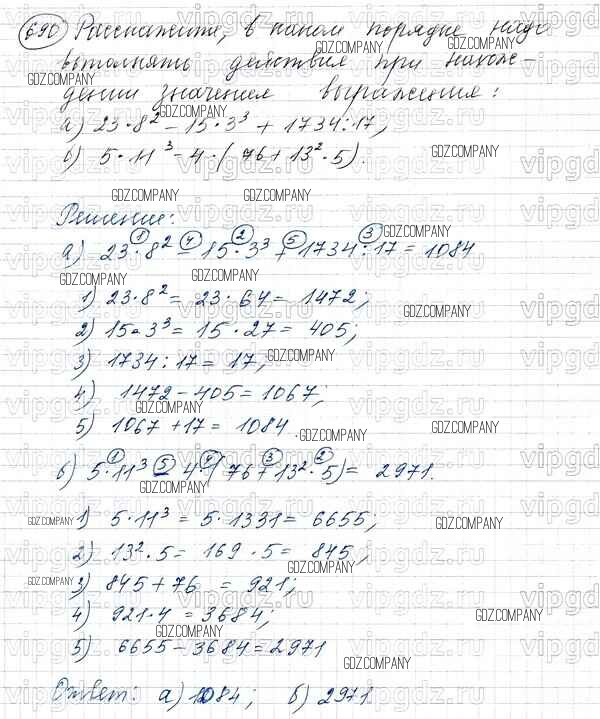 690 Расскажите, в каком порядке надо
выполнять действия при нахож-
дении значения выражения:
а) 23·8² - 15·3³ + 1734:17;
б) 5·11³ - 4·(76 + 13²·5).
Решение:
а) 23·8² - 15·3³ + 1734:17 = 1084
1) 23·8² = 23·64 = 1472;
2) 15·3³ = 15·27 = 405;
3) 1734:17 = 17;
4) 1472 - 405 = 1067;
5) 1067 + 17 = 1084.
б) 5·11³ - 4·(76 + 13²·5) = 2971.
1) 5·11³ = 5·1331 = 6655;
2) 13²·5 = 169·5 = 845;
3) 845 + 76 = 921;
4) 921·4 = 3684;
5) 6655 - 3684 = 2971
Ответ: а) 1084; б) 2971.
GDZ.COMPANY
vipgdz.ru